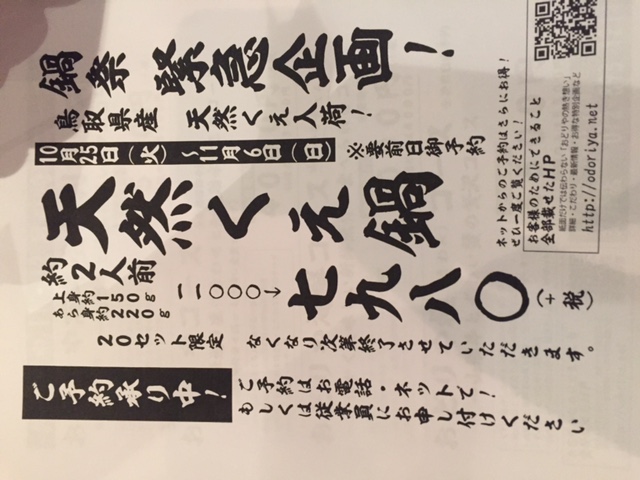 鍋祭 緊急企画！
鳥取県産 天然くえ入荷！
10月25日（火）～11月6日（日）
※要前日御予約
天然くえ鍋
約2人前
上身約150g
あら身約220g
一一〇〇〇→
七九八〇
（＋税）
20セット限定 なくなり次第終了させていただきます。
ご予約承り中！
ご予約はお電話・ネットで！
もしくは従業員にお申し付けください
ネットからのご予約はさらにお得！
ぜひ一度ご覧ください！
お客様のためにできること
全部載せたHP
紙面だけでは伝わらない「おどりやの熱き想い」
詳細・こだわり・最新情報・お得な特別企画など
http://odoriya.net